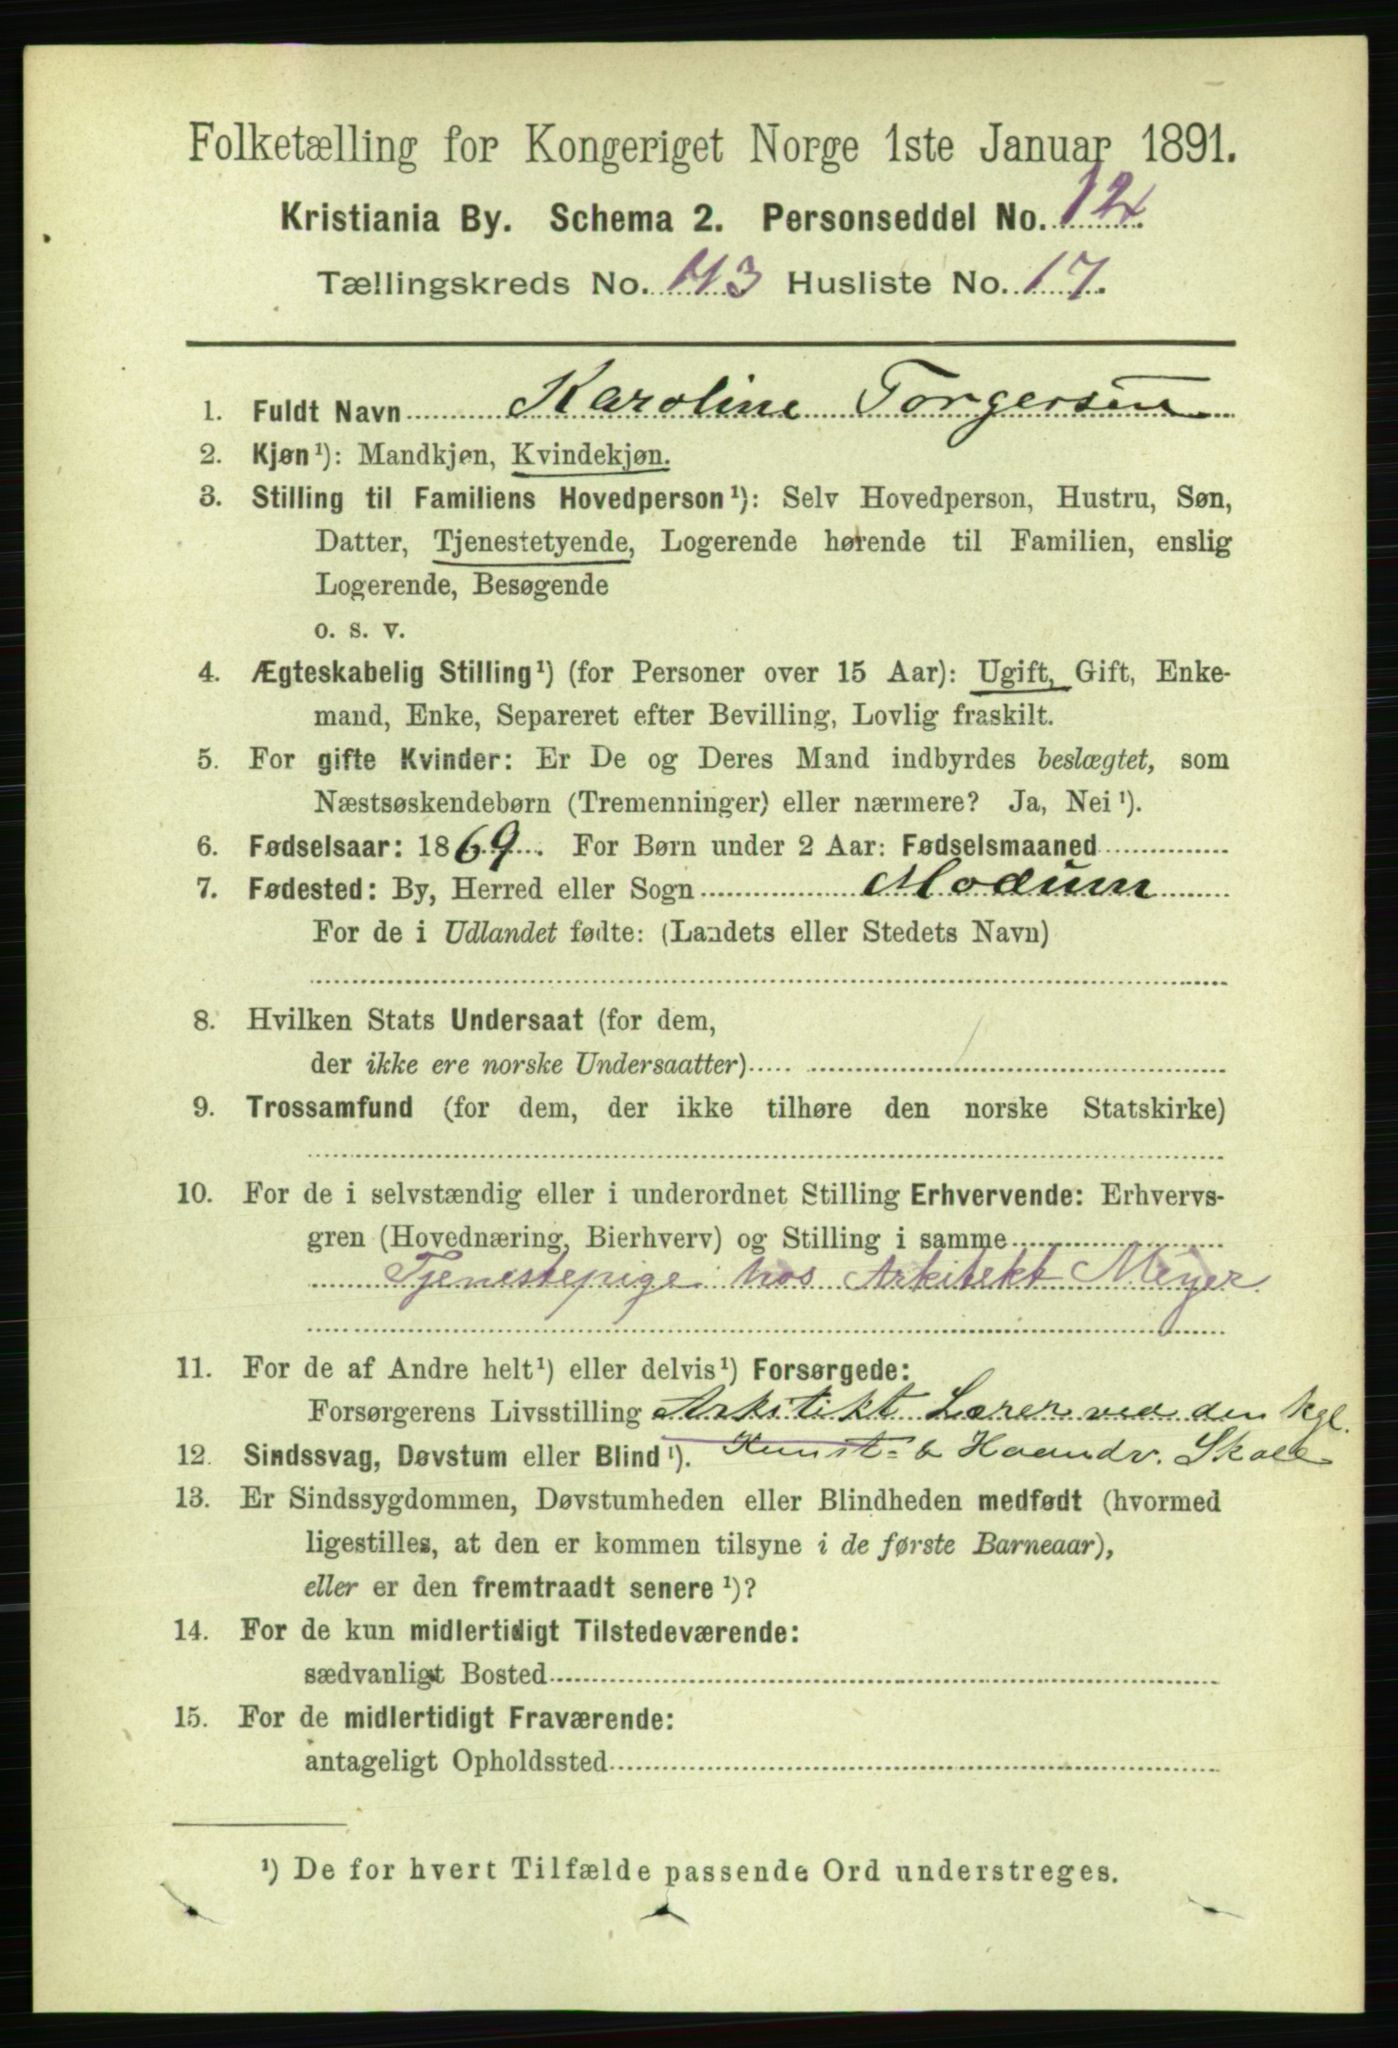 Folketælling for Kongeriget Norge 1ste Januar 1891.
Kristiania By. Schema 2. Personseddel No. 12
Tællingskreds No. 113 Husliste No. 17.
1. Fuldt Navn Karoline Torgersen
2. Kjøn¹): Mandkjøn, Kvindekjøn.
3. Stilling til Familiens Hovedperson¹): Selv Hovedperson, Hustru, Søn,
Datter, Tjenestetyende, Logerende hørende til Familien, enslig
Logerende, Besøgende
o. s. v.
4. Ægteskabelig Stilling¹) (for Personer over 15 Aar): Ugift, Gift, Enke-
mand, Enke, Separeret efter Bevilling, Lovlig fraskilt.
5. For gifte Kvinder: Er De og Deres Mand indbyrdes beslægtet, som
Næstsøskendebørn (Tremenninger) eller nærmere? Ja, Nei¹).
6. Fødselsaar: 1869. For Børn under 2 Aar: Fødselsmaaned
7. Fødested: By, Herred eller Sogn Modum
For de i Udlandet fødte: (Landets eller Stedets Navn)
8. Hvilken Stats Undersaat (for dem,
der ikke ere norske Undersaatter)
9. Trossamfund (for dem, der ikke tilhøre den norske Statskirke)
10. For de i selvstændig eller i underordnet Stilling Erhvervende: Erhvervs-
gren (Hovednæring, Bierhverv) og Stilling i samme
Tjenestepige hos Arkitekt Meyer
11. For de af Andre helt¹) eller delvis¹) Forsørgede:
Forsørgerens Livsstilling Arkitikt Lærer ved den kgl.
12. Sindssvag, Døvstum eller Blind¹). Kunst- & Haandv. Skole
13. Er Sindssygdommen, Døvstumheden eller Blindheden medfødt (hvormed
ligestilles, at den er kommen tilsyne i de første Barneaar),
eller er den fremtraadt senere¹)?
14. For de kun midlertidigt Tilstedeværende:
sædvanligt Bosted
15. For de midlertidigt Fraværende:
antageligt Opholdssted
¹) De for hvert Tilfælde passende Ord understreges.